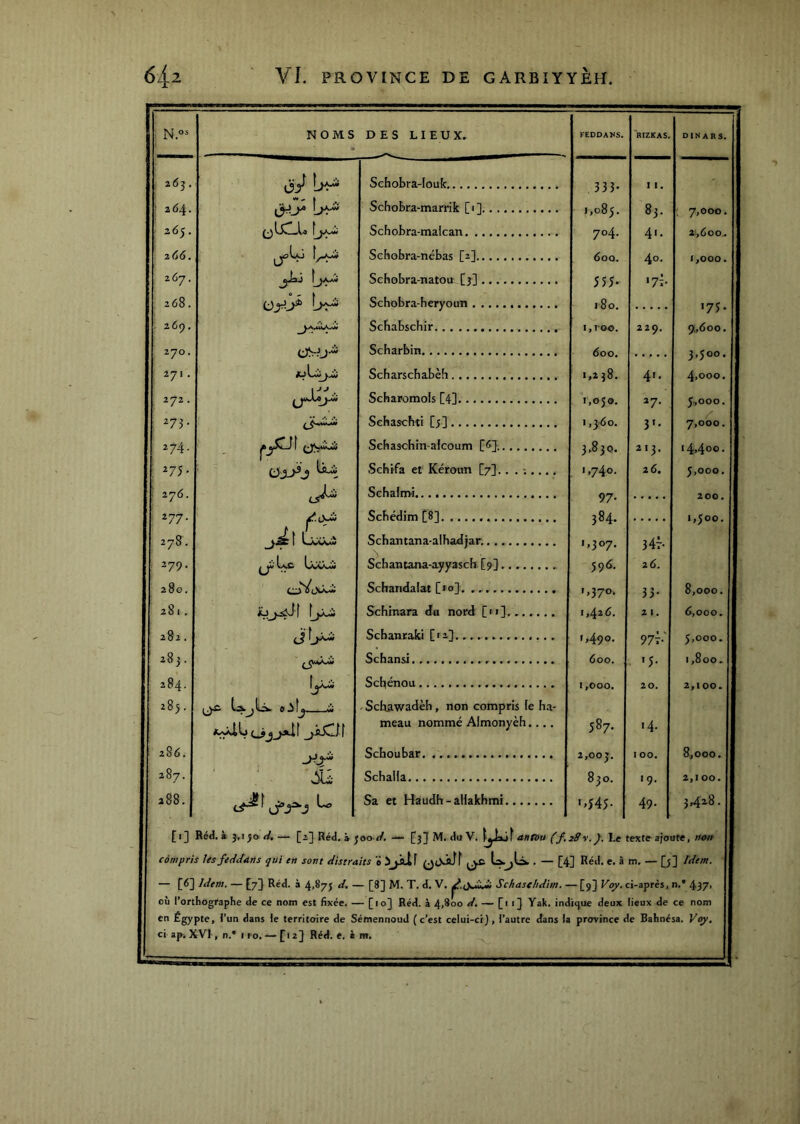 642 VI. PROVINCE DE GARBIYYÈH.
N.os NOMS DES LIEUX. FEDDANS. RIZKAS. DINARS.
263. شبرا لوق Schobra-louk 333. 11.
264. شبرا مريق Schobra-marrik [1] 1,085. 83. 7,000.
265. شبرا ملكان Schobra-malcan 704. 41. 2,600.
266. شبرا نباص Schobra-nébas [2] 600. 40. 1,000.
267. شبرا نطو Schobra-natou [3] 555. 17½.
268. شبرا هريون Schobra-heryoun 180. ..... 175.
269. شبشير Schabschir 1,100. 229. 9,600.
270. شربين Scharbin 600. ..... 3,500.
271. شرشابه Scharschabèh 1,238. 41. 4,000.
272. شرملس Scharomols [4] 1,050. 27. 5,000.
273. ششتى Schaschti [5] 1,360. 31. 7,000.
274. ششين الكوم Schaschin-alcoum [6] 3,830. 213. 14,400.
275. شفا وقرون Schifa et Kéroun [7] 1,740. 26. 5,000.
276. شلمى Schalmi 97. ..... 200.
277. شديم Schédim [8] 384. ..... 1,500.
278. شنتنا الحجر Schantana-alhadjar 1,307. 34½.
279. شنتنا عياش Schantana-ayyasch [9] 596. 26.
280. شندلات Schandalat [10] 1,370. 33. 8,000.
281. شنرا البحرية Schinara du nord [11] 1,426. 21. 6,000.
282. شنراق Schanraki [12] 1,490. 97½. 5,000.
283. شنسى Schansi 600. 15. 1,800.
284. شنوا Schénou 1,000. 20. 2,100.
285. شواده خارجا عن Schawadèh, non compris le ha-
الكفر المعروف بالمنية meau nommé Almonyèh.... 587. 14.
286. شوبر Schoubar 2,003. 100. 8,000.
287. شالا Schalla 830. 19. 2,100.
288. صا وحوض الخمى Sa et Haudh-allakhmi 1,545. 49. 3,428.
[1] Réd. à 3,150 d. — [2] Réd. à 500 d. — [3] M. du V. انطوا antou (f. 28 v.). Le texte ajoute, non
compris les feddans qui en sont distraits خارجا عن الفدن المفرزة. — [4] Réd. e. à m. — [5] Idem.
— [6] Idem. — [7] Réd. à 4,875 d. — [8] M. T. d. V. ششديم Schaschdim. — [9] Voy. ci-après, n.° 437,
où l'orthographe de ce nom est fixée. — [10] Réd. à 4,800 d. — [11] Yak. indique deux lieux de ce nom
en Égypte, l'un dans le territoire de Sémennoud (c'est celui-ci), l'autre dans la province de Bahnésa. Voy.
ci ap. XVI, n.° 110. — [12] Réd. e. à m.